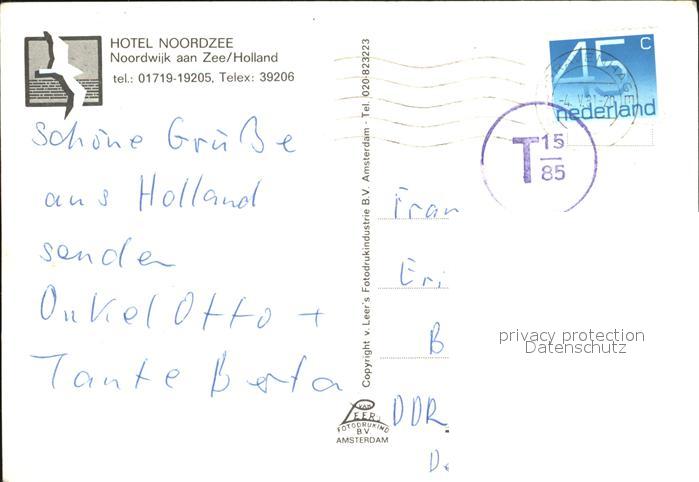 HOTEL NOORDZEE
Noordwijk aan Zee/Holland
tel.: 01719-19205, Telex: 39206
schöne Grüße
aus Holland
senden
Onkel Otto +
Tante Berta
Copyright v. Leer's Fotodrukindustrie B.V. Amsterdam - Tel. 020-823223
VAN
LEER
FOTODRUKIND
B.V.
AMSTERDAM
45 c
nederland
T 15
85
Eri
B
DDR
privacy protection
Datenschutz